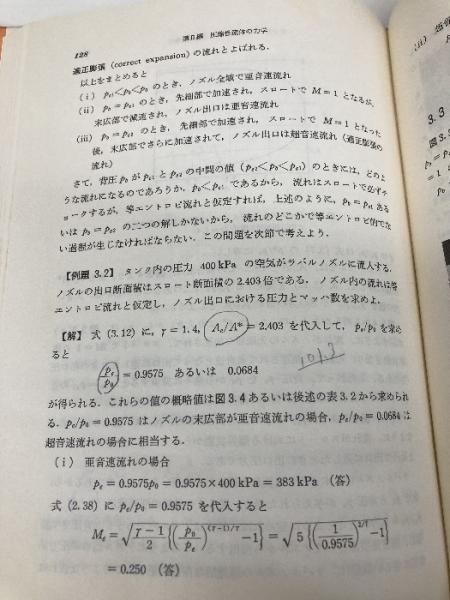 128
第Ⅱ編 圧縮性流体の力学
適正膨張 (correct expansion) の流れとよばれる.
以上をまとめると
(i) p_{e1}<p_b<p_0 のとき, ノズル全域で亜音速流れ
(ii) p_b=p_{e1} のとき, 先細部で加速され, スロートで M=1 となるが,
末広部で減速され, ノズル出口は亜音速流れ
(iii) p_b=p_{e2} のとき, 先細部で加速され, スロートで M=1 となった
後, 末広部でさらに加速されて, ノズル出口は超音速流れ (適正膨張の
流れ)
さて, 背圧 p_b が p_{e1} と p_{e2} の中間の値 (p_{e2}<p_b<p_{e1}) のときには, どのよ
うな流れになるのであろうか. p_b<p_{e1} であるから, 流れはスロートで必ずチ
ョークするが, 等エントロピ流れと仮定すれば, 上述のように, p_b=p_{e1} ある
いは p_b=p_{e2} の二つの解しかないから, 流れのどこかで等エントロピ的でな
い過程が生じなければならない. この問題を次節で考えよう.
【例題 3.2】 タンク内の圧力 400 kPa の空気がラバルノズルに流入する.
ノズルの出口断面積はスロート断面積の 2.403 倍である. ノズル内の流れは等
エントロピ流れと仮定し, ノズル出口における圧力とマッハ数を求めよ.
【解】 式 (3.12) に, γ=1.4, A_e/A*=2.403 を代入して, p_e/p_0 を求め
ると
p_e/p_0=0.9575 あるいは 0.0684
101.3
が得られる. これらの値の概略値は図 3.4 あるいは後述の表 3.2 から求められ
る. p_e/p_0=0.9575 はノズルの末広部が亜音速流れの場合, p_e/p_0=0.0684 は
超音速流れの場合に相当する.
(i) 亜音速流れの場合
p_e=0.9575p_0=0.9575×400 kPa=383 kPa (答)
式 (2.38) に p_e/p_0=0.9575 を代入すると
M_e=√(γ-1/2{(p_0/p_e)^{(γ-1)/γ}-1})=√(5{(1/0.9575)^{2/7}-1})
=0.250 (答)
(ii) 超音
3.3
図 3.